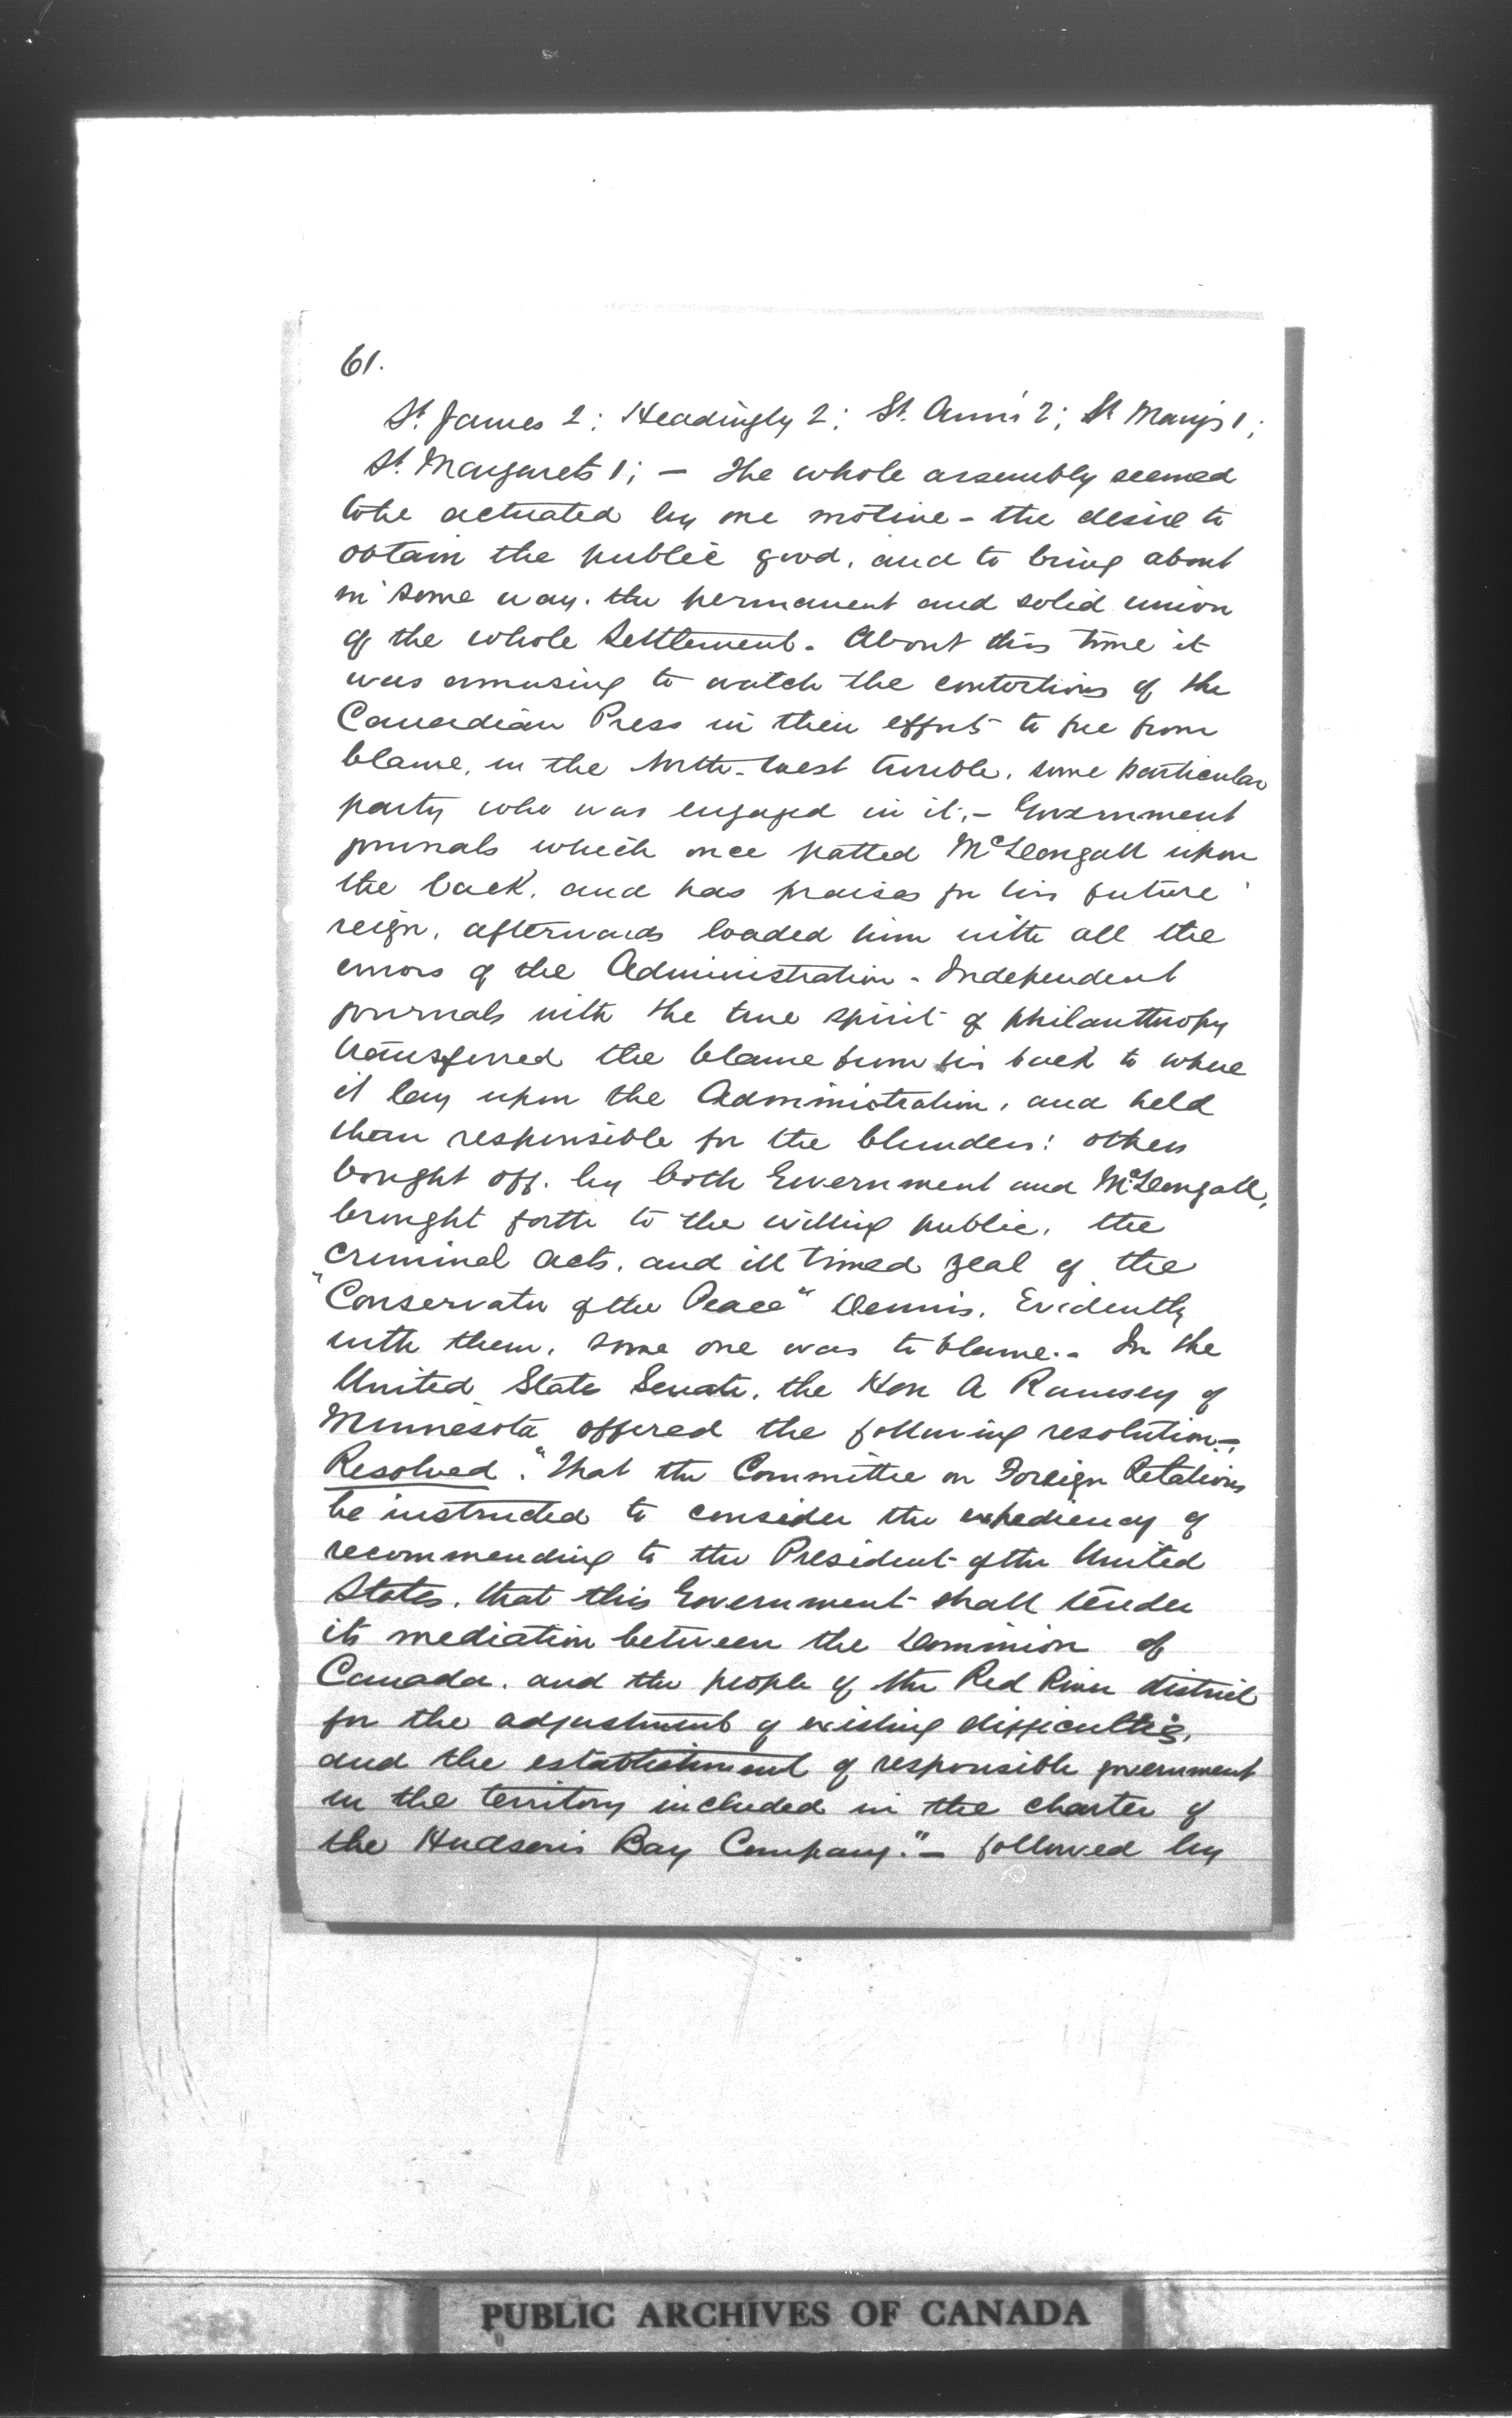 61.
St. James 2; Headingly 2; St. Ann's 2; St Mary's 1;
St. Margarets 1; — The whole assembly seemed
to be actuated by one motive - the desire to
obtain the public good, and to bring about
in some way, the permanent and solid union
of the whole Settlement. About this time it
was amusing to watch the contortions of the
Canadian Press in their efforts to free from
blame, in the North-West trouble, some particular
party who was engaged in it;- Government
journals which once patted McDougall upon
the back, and has praises for his future
reign, afterwards loaded him with all the
errors of the Administration - Independent
journals with the true spirit of philanthropy
transferred the blame from his back to where
it lay upon the Administration, and held
them responsible for the blunders: others
bought off, by both Government and McDougall,
brought forth to the willing public, the
criminal acts, and ill timed zeal of the
"Conservator of the Peace" Dennis. Evidently
with them, some one was to blame.- In the
United State Senate, the Hon A Ramsey of
Minnesota offered the following resolution-;
Resolved. "That the Committee on Foreign Relations
be instructed to consider the expediency of
recommending to the President of the United
States, that this Government shall tender
its mediation between the Dominion of
Canada, and the people of the Red River district
for the adjustment of existing difficulties,
and the establishment of responsible government
in the territory included in the charter of
the Hudson's Bay Company." — followed by
PUBLIC ARCHIVES OF CANADA